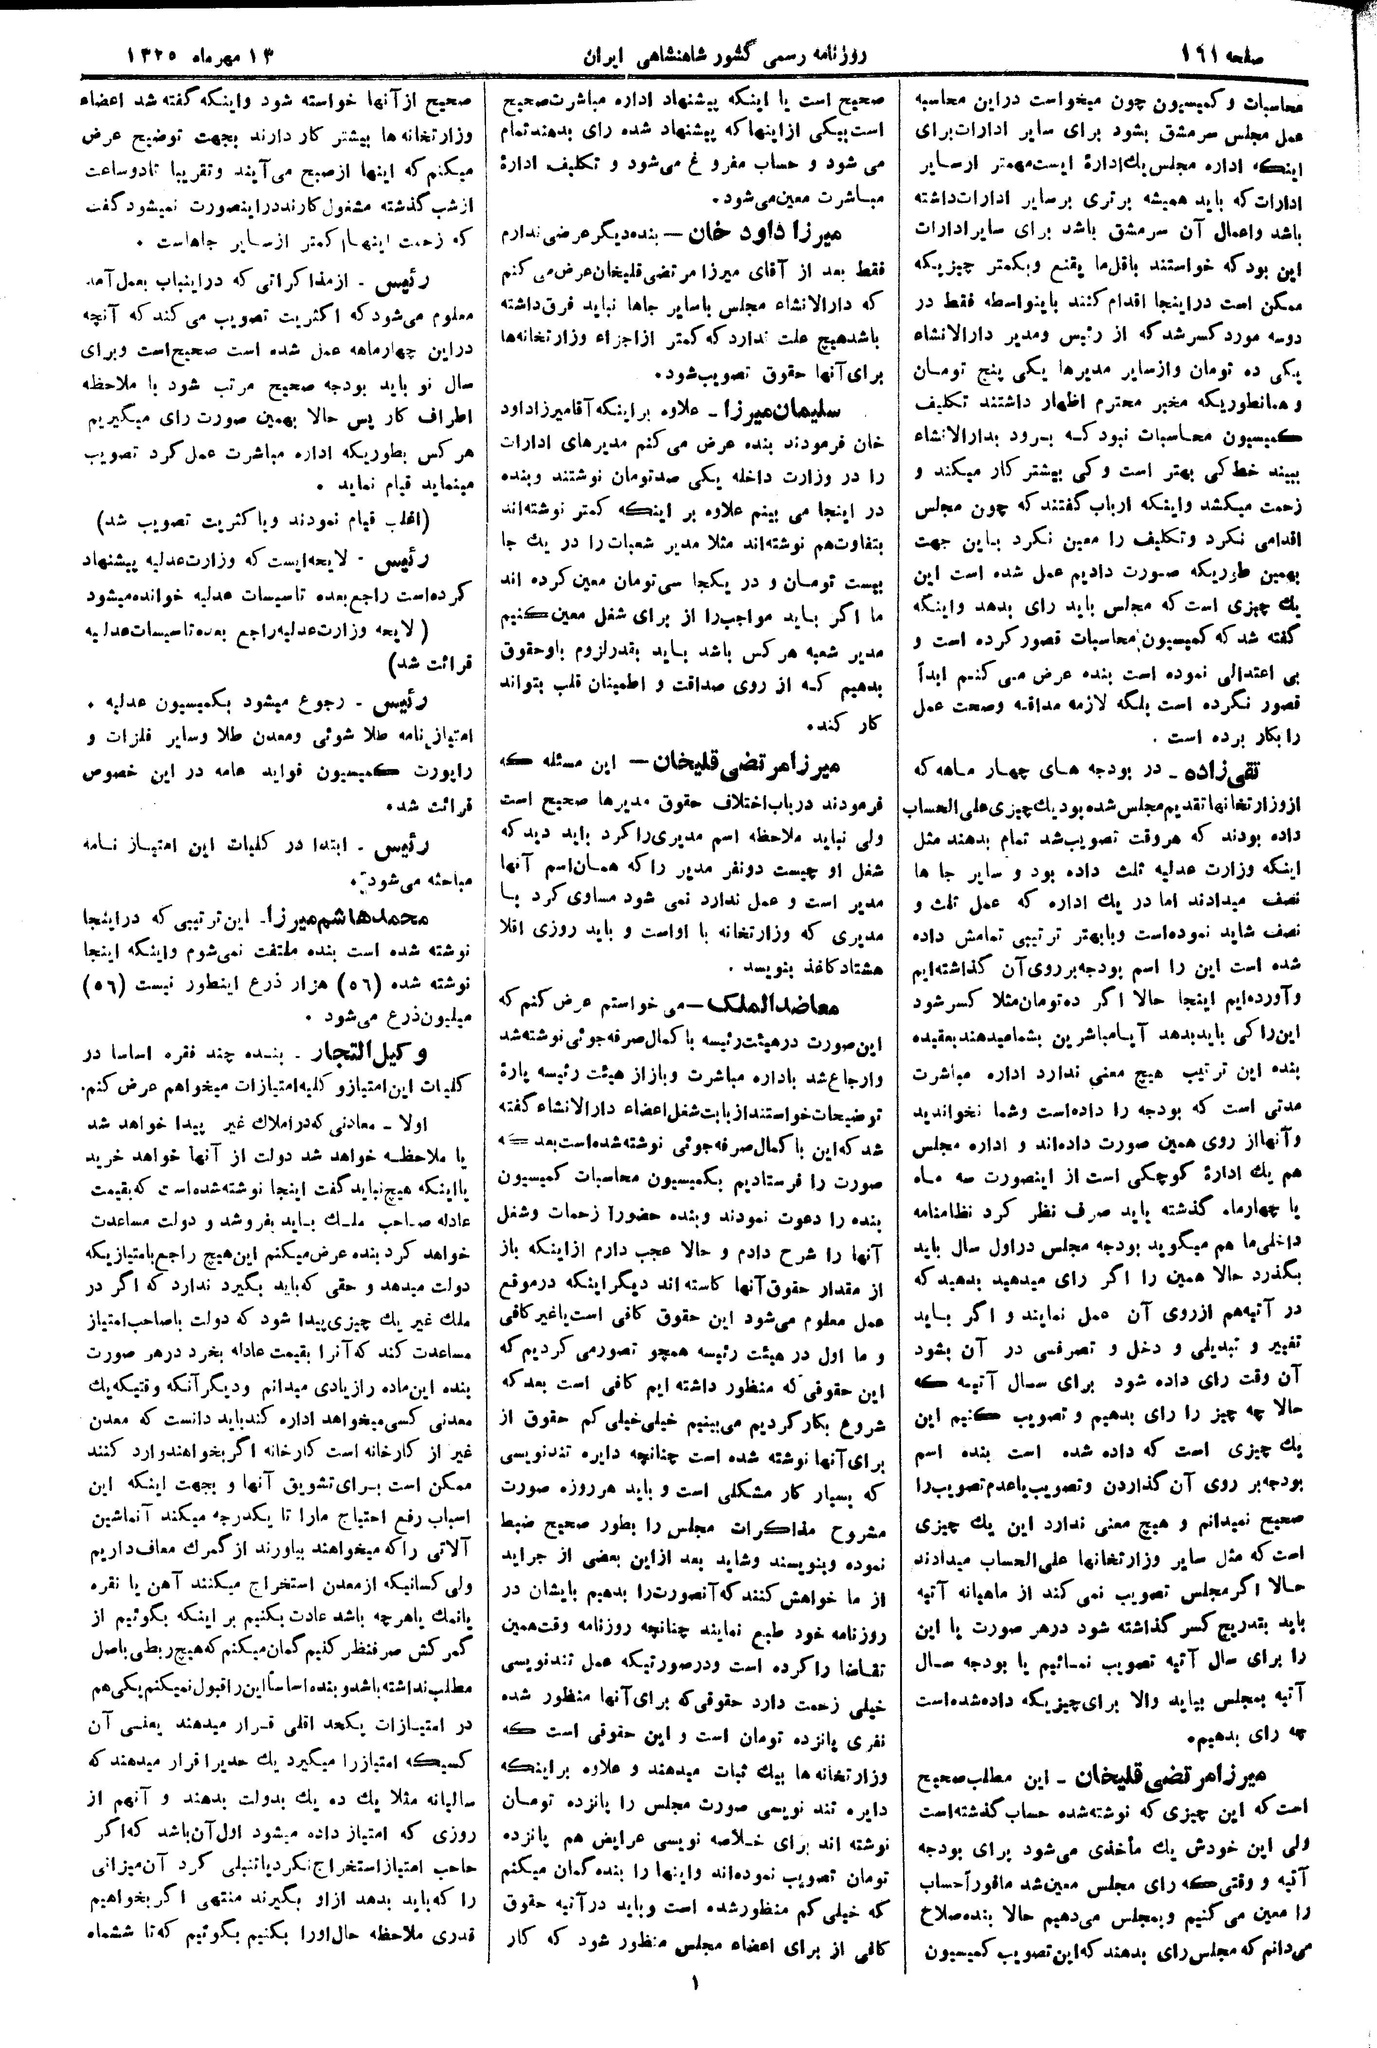 صفحه ۱۶۱
روزنامه رسمی کشور شاهنشاهی ایران
۱۳ مهرماه ۱۳۲۵
محاسبات و کمیسیون چون میخواست در این محاسبه
عمل مجلس سرمشق بشود برای سایر ادارات برای
اینکه اداره مجلس یك ادارۀ ایست مهمتر از سایر
ادارات که باید همیشه برتری بر سایر ادارات داشته
باشد و اعمال آن سرمشق باشد برای سایر ادارات
این بود که خواستند باقل ما یقنع و بکمتر چیزیکه
ممکن است در اینجا اقدام کنند باینواسطه فقط در
دو سه مورد کسر شد که از رئیس و مدیر دارالانشاء
یکی ده تومان و از سایر مدیرها یکی پنج تومان
و همانطوریکه مخبر محترم اظهار داشتند تکلیف
کمیسیون محاسبات نبود که برود بدارالانشاء
ببیند خط کی بهتر است و کی بیشتر کار میکند و
زحمت میکشد و اینکه ارباب گفتند که چون مجلس
اقدامی نکرد و تکلیف را معین نکرد باین جهت
بهمین طوریکه صورت دادیم عمل شده است این
یك چیزی است که مجلس باید رای بدهد و اینکه
گفته شد که کمیسیون محاسبات قصور کرده است و
بی اعتدالی نموده است بنده عرض می کنم ابداً
قصور نکرده است بلکه لازمه مداقه و صحت عمل
را بکار برده است .
تقی زاده ـ در بودجه های چهار ماهه که
از وزارتخانها تقدیم مجلس شده بود یك چیزی علی الحساب
داده بودند که هر وقت تصویب شد تمام بدهند مثل
اینکه وزارت عدلیه ثلث داده بود و سایر جا ها
نصف میدادند اما در یك اداره که عمل ثلث و
نصف شاید نموده است و یا بهتر ترتیبی تمامش داده
شده است این را اسم بودجه بر روی آن گذاشته ایم
و آورده ایم اینجا حالا اگر ده تومان مثلا کسر شود
این را کی باید بدهد آیا مباشرین بشما میدهند بعقیده
بنده این ترتیب هیچ معنی ندارد اداره مباشرت
مدتی است که بودجه را داده است و شما نخواندید
و آنها از روی همین صورت داده اند و اداره مجلس
هم یك ادارۀ کوچکی است از اینصورت سه ماه
یا چهارماه گذشته باید صرف نظر کرد نظامنامه
داخلی ما هم میگوید بودجه مجلس در اول سال باید
بگذرد حالا همین را اگر رای میدهید بدهید که
در آتیه هم از روی آن عمل نمایند و اگر باید
تغییر و تبدیلی و دخل و تصرفی در آن بشود
آن وقت رای داده شود برای سال آتیه که
حالا چه چیز را رای بدهیم و تصویب کنیم این
یك چیزی است که داده شده است بنده اسم
بودجه بر روی آن گذاردن و تصویب یا عدم تصویب را
صحیح نمیدانم و هیچ معنی ندارد این یك چیزی
است که مثل سایر وزارتخانها علی الحساب میدادند
حالا اگر مجلس تصویب نمی کند از ماهیانه آتیه
باید بتدریج کسر گذاشته شود در هر صورت یا این
را برای سال آتیه تصویب نمائیم یا بودجه سال
آتیه بمجلس بیاید والا برای چیزیکه داده شده است
چه رای بدهیم.
میرزا مرتضی قلیخان ـ این مطلب صحیح
است که این چیزی که نوشته شده حساب گذشته است
ولی این خودش یك مأخذی می شود برای بودجه
آتیه و وقتی که رای مجلس معین شد مافور آحساب
را معین می کنیم و بمجلس می دهیم حالا بنده صلاح
می دانم که مجلس رای بدهند که این تصویب کمیسیون
صحیح است یا اینکه پیشنهاد اداره مباشرت صحیح
است بیکی از اینها که پیشنهاد شده رای بدهند تمام
می شود و حساب مفروغ می شود و تکلیف ادارۀ
مباشرت معین می شود.
میرزا داود خان — بنده دیگر عرضی ندارم
فقط بعد از آقای میرزا مرتضی قلیخان عرض می کنم
که دارالانشاء مجلس با سایر جاها نباید فرق داشته
باشد هیچ علت ندارد که کمتر از اجزاء وزارتخانه ها
برای آنها حقوق تصویب شود.
سلیمان میرزا ـ علاوه بر اینکه آقا میرزا داود
خان فرمودند بنده عرض می کنم مدیرهای ادارات
را در وزارت داخله یکی صد تومان نوشتند و بنده
در اینجا می بینم علاوه بر اینکه کمتر نوشته اند
بتفاوت هم نوشته اند مثلا مدیر شعبات را در یك جا
بیست تومان و در یکجا سی تومان معین کرده اند
ما اگر باید مواجب را از برای شغل معین کنیم
مدیر شعبه هر کس باشد باید بقدر لزوم باو حقوق
بدهیم که از روی صداقت و اطمینان قلب بتواند
کار کند.
میرزا مرتضی قلیخان — این مسئله که
فرمودند در باب اختلاف حقوق مدیرها صحیح است
ولی نباید ملاحظه اسم مدیری را کرد باید دید که
شغل او چیست دو نفر مدیر را که همان اسم آنها
مدیر است و عمل ندارد نمی شود مساوی کرد با
مدیری که وزارتخانه با او است و باید روزی اقلا
هشتاد کاغذ بنویسد .
معاضدالملک — می خواستم عرض کنم که
این صورت در هیئت رئیسه با کمال صرفه جوئی نوشته شد
و ارجاع شد باداره مباشرت و باز از هیئت رئیسه پارۀ
توضیحات خواستند از بابت شغل اعضاء دارالانشاء گفته
شد که این با کمال صرفه جوئی نوشته شده است بعد که
صورت را فرستادیم بکمیسیون محاسبات کمیسیون
بنده را دعوت نمودند و بنده حضوراً زحمات و شغل
آنها را شرح دادم و حالا عجب دارم از اینکه باز
از مقدار حقوق آنها کاسته اند دیگر اینکه در موقع
عمل معلوم می شود این حقوق کافی است یا غیر کافی
و ما اول در هیئت رئیسه همچو تصور می کردیم که
این حقوقی که منظور داشته ایم کافی است بعد که
شروع بکار کردیم می بینیم خیلی خیلی کم حقوق از
برای آنها نوشته شده است چنانچه دایره تند نویسی
که بسیار کار مشکلی است و باید هر روزه صورت
مشروح مذاکرات مجلس را بطور صحیح ضبط
نموده و بنویسند و شاید بعد از این بعضی از جراید
از ما خواهش کنند که آنصورت را بدهیم بایشان در
روزنامه خود طبع نمایند چنانچه روزنامه وقت همین
تقاضا را کرده است و در صورتیکه عمل تند نویسی
خیلی زحمت دارد حقوقی که برای آنها منظور شده
نفری پانزده تومان است و این حقوقی است که
وزارتخانه ها بیك ثبات میدهند و علاوه بر اینکه
دایره تند نویسی صورت مجلس را پانزده تومان
نوشته اند برای خلاصه نویسی عرایض هم پانزده
تومان تصویب نموده اند و اینها را بنده گمان میکنم
که خیلی کم منظور شده است و باید در آتیه حقوق
کافی از برای اعضاء مجلس منظور شود که کار
صحیح از آنها خواسته شود و اینکه گفته شد اعضاء
وزارتخانه ها بیشتر کار دارند بجهت توضیح عرض
میکنم که اینها از صبح می آیند و تقریبا تا دو ساعت
از شب گذشته مشغول کارند در اینصورت نمیشود گفت
که زحمت اینها کمتر از سایر جاهاست .
رئیس ـ از مذاکراتی که در اینباب بعمل آمد
معلوم می شود که اکثریت تصویب می کند که آنچه
در این چهار ماهه عمل شده است صحیح است و برای
سال نو باید بودجه صحیح مرتب شود با ملاحظه
اطراف کار پس حالا بهمین صورت رای میگیریم
هر کس بطوریکه اداره مباشرت عمل کرد تصویب
مینماید قیام نماید .
(اغلب قیام نمودند و با کثریت تصویب شد)
رئیس ـ لایحه ایست که وزارت عدلیه پیشنهاد
کرده است راجع بعده تاسیسات عدلیه خوانده میشود
( لایحه وزارت عدلیه راجع بعده تاسیسات عدلیه
قرائت شد)
رئیس ـ رجوع میشود بکمیسیون عدلیه .
امتیازنامه طلا شوئی و معدن طلا و سایر فلزات و
راپورت کمیسیون فواید عامه در این خصوص
قرائت شد.
رئیس ـ ابتدا در کلیات این امتیاز نامه
مباحثه می شود.
محمد هاشم میرزا ـ این ترتیبی که در اینجا
نوشته شده است بنده ملتفت نمی شوم و اینکه اینجا
نوشته شده (۵۶) هزار ذرع اینطور نیست (۵۶)
میلیون ذرع می شود .
وکیل التجار ـ بنده چند فقره اساسا در
کلیات این امتیاز و کلیه امتیازات میخواهم عرض کنم.
اولا ـ معادنی که در املاك غیر پیدا خواهد شد
یا ملاحظه خواهد شد دولت از آنها خواهد خرید
یا اینکه هیچ نباید گفت اینجا نوشته شده است که بقیمت
عادله صاحب ملك باید بفروشد و دولت مساعدت
خواهد کرد بنده عرض میکنم این هیچ راجع بامتیازیکه
دولت میدهد و حقی که باید بگیرد ندارد که اگر در
ملك غیر یك چیزی پیدا شود که دولت با صاحب امتیاز
مساعدت کند که آنرا بقیمت عادله بخرد در هر صورت
بنده این ماده را زیادی میدانم و دیگر آنکه وقتیکه یك
معدنی کسی میخواهد اداره کند باید دانست که معدن
غیر از کارخانه است کارخانه اگر بخواهند وارد کنند
ممکن است برای تشویق آنها و بجهت اینکه این
اسباب رفع احتیاج مارا تا یکدرجه میکند آنماشین
آلاتی را که میخواهند بیاورند از گمرك معاف داریم
ولی کسانیکه از معدن استخراج میکنند آهن یا نقره
یا نمك یا هر چه باشد عادت بکنیم بر اینکه بگوئیم از
گمرکش صرفنظر کنیم گمان میکنم که هیچ ربطی باصل
مطلب نداشته باشد و بنده اساساً این را قبول نمیکنم یکی هم
در امتیازات یکحد اقلی قرار میدهند یعنی آن
کسیکه امتیاز را میگیرد یك حدیرا قرار میدهند که
سالیانه مثلا یك ده یك بدولت بدهند و آنهم از
روزی که امتیاز داده میشود اول آن باشد که اگر
صاحب امتیاز استخراج نکرد یا تنبلی کرد آن میزانی
را که باید بدهد از او بگیرند منتهی اگر بخواهیم
قدری ملاحظه حال اورا بکنیم بگوئیم که تا ششماه
۱